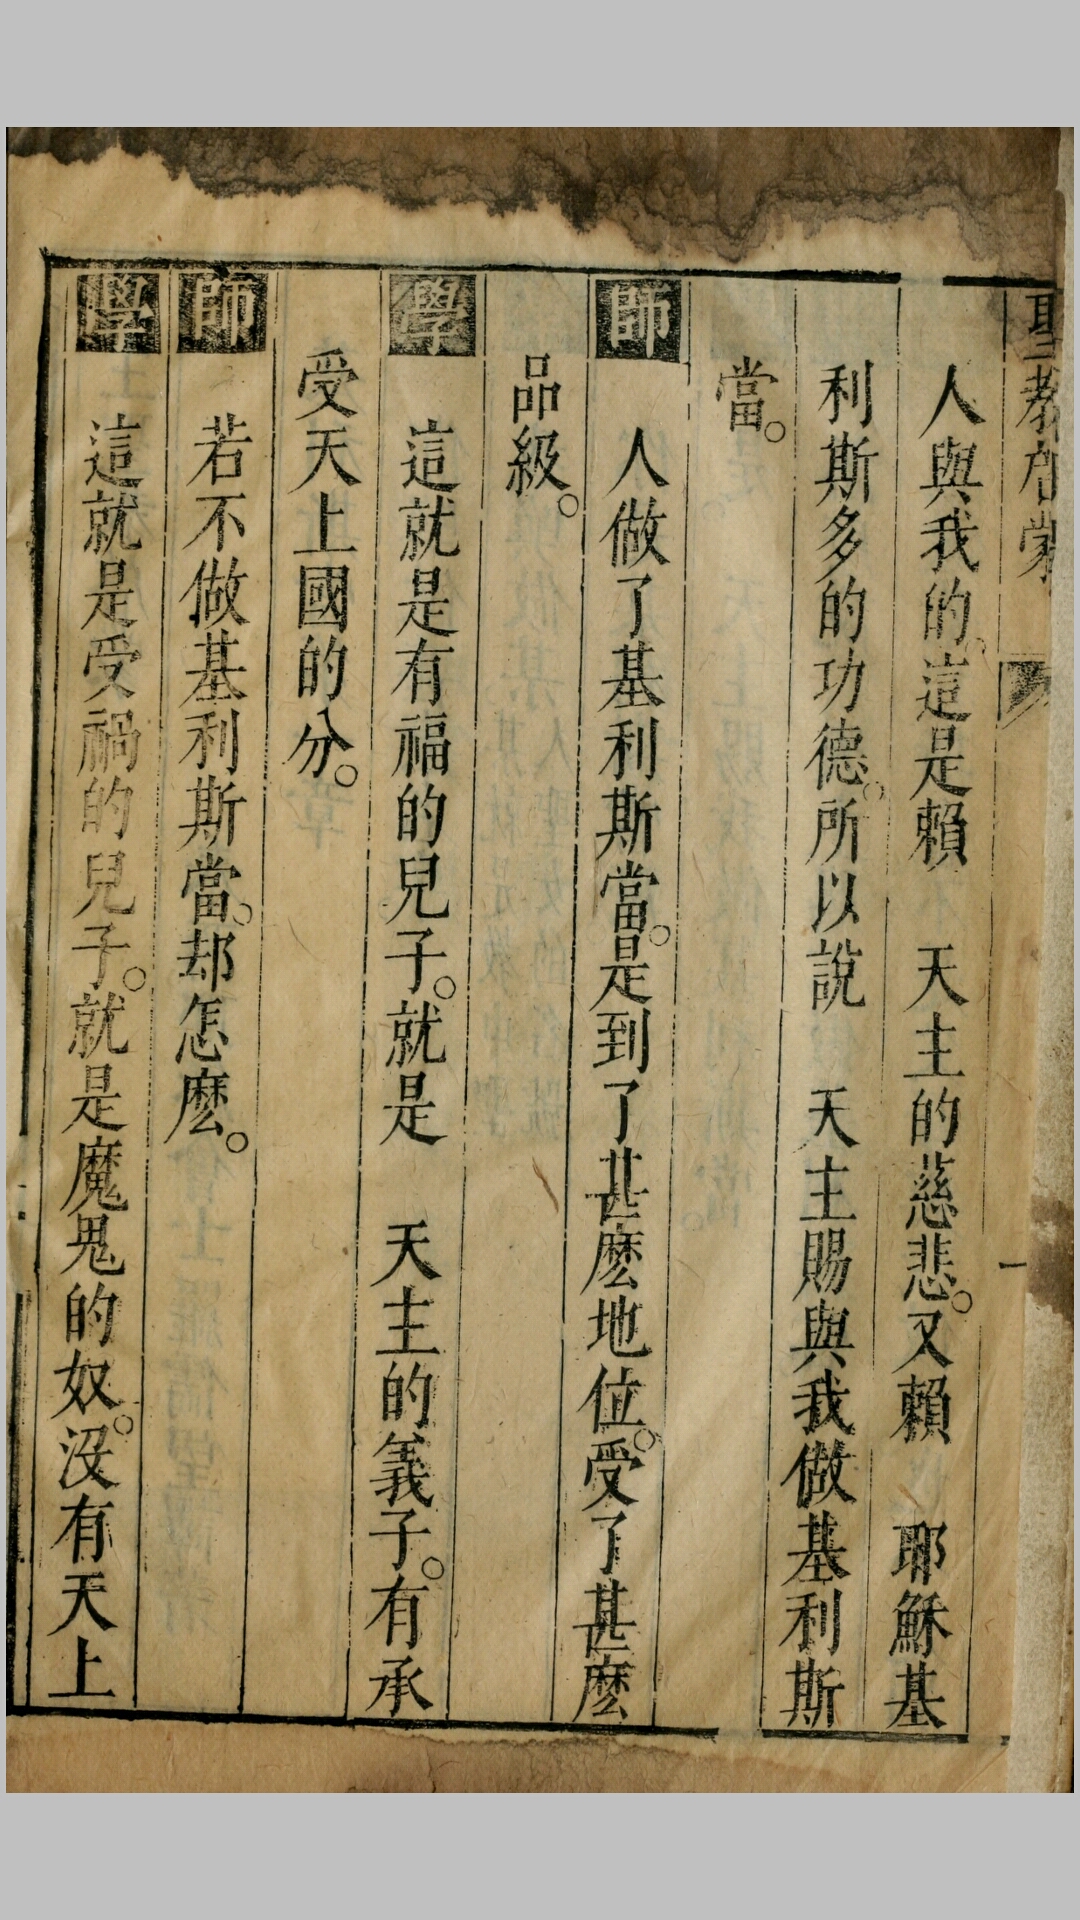 聖教啓蒙
一
人與我的。這是賴　天主的慈悲。又賴　耶穌基
利斯多的功德。所以說　天主賜與我做基利斯
當。
師　人做了基利斯當。是到了甚麽地位。受了甚麽
品級。
學　這就是有福的兒子。就是　天主的義子。有承
受天上國的分。
師　若不做基利斯當。却怎麽。
學　這就是受禍的兒子。就是魔鬼的奴。沒有天上